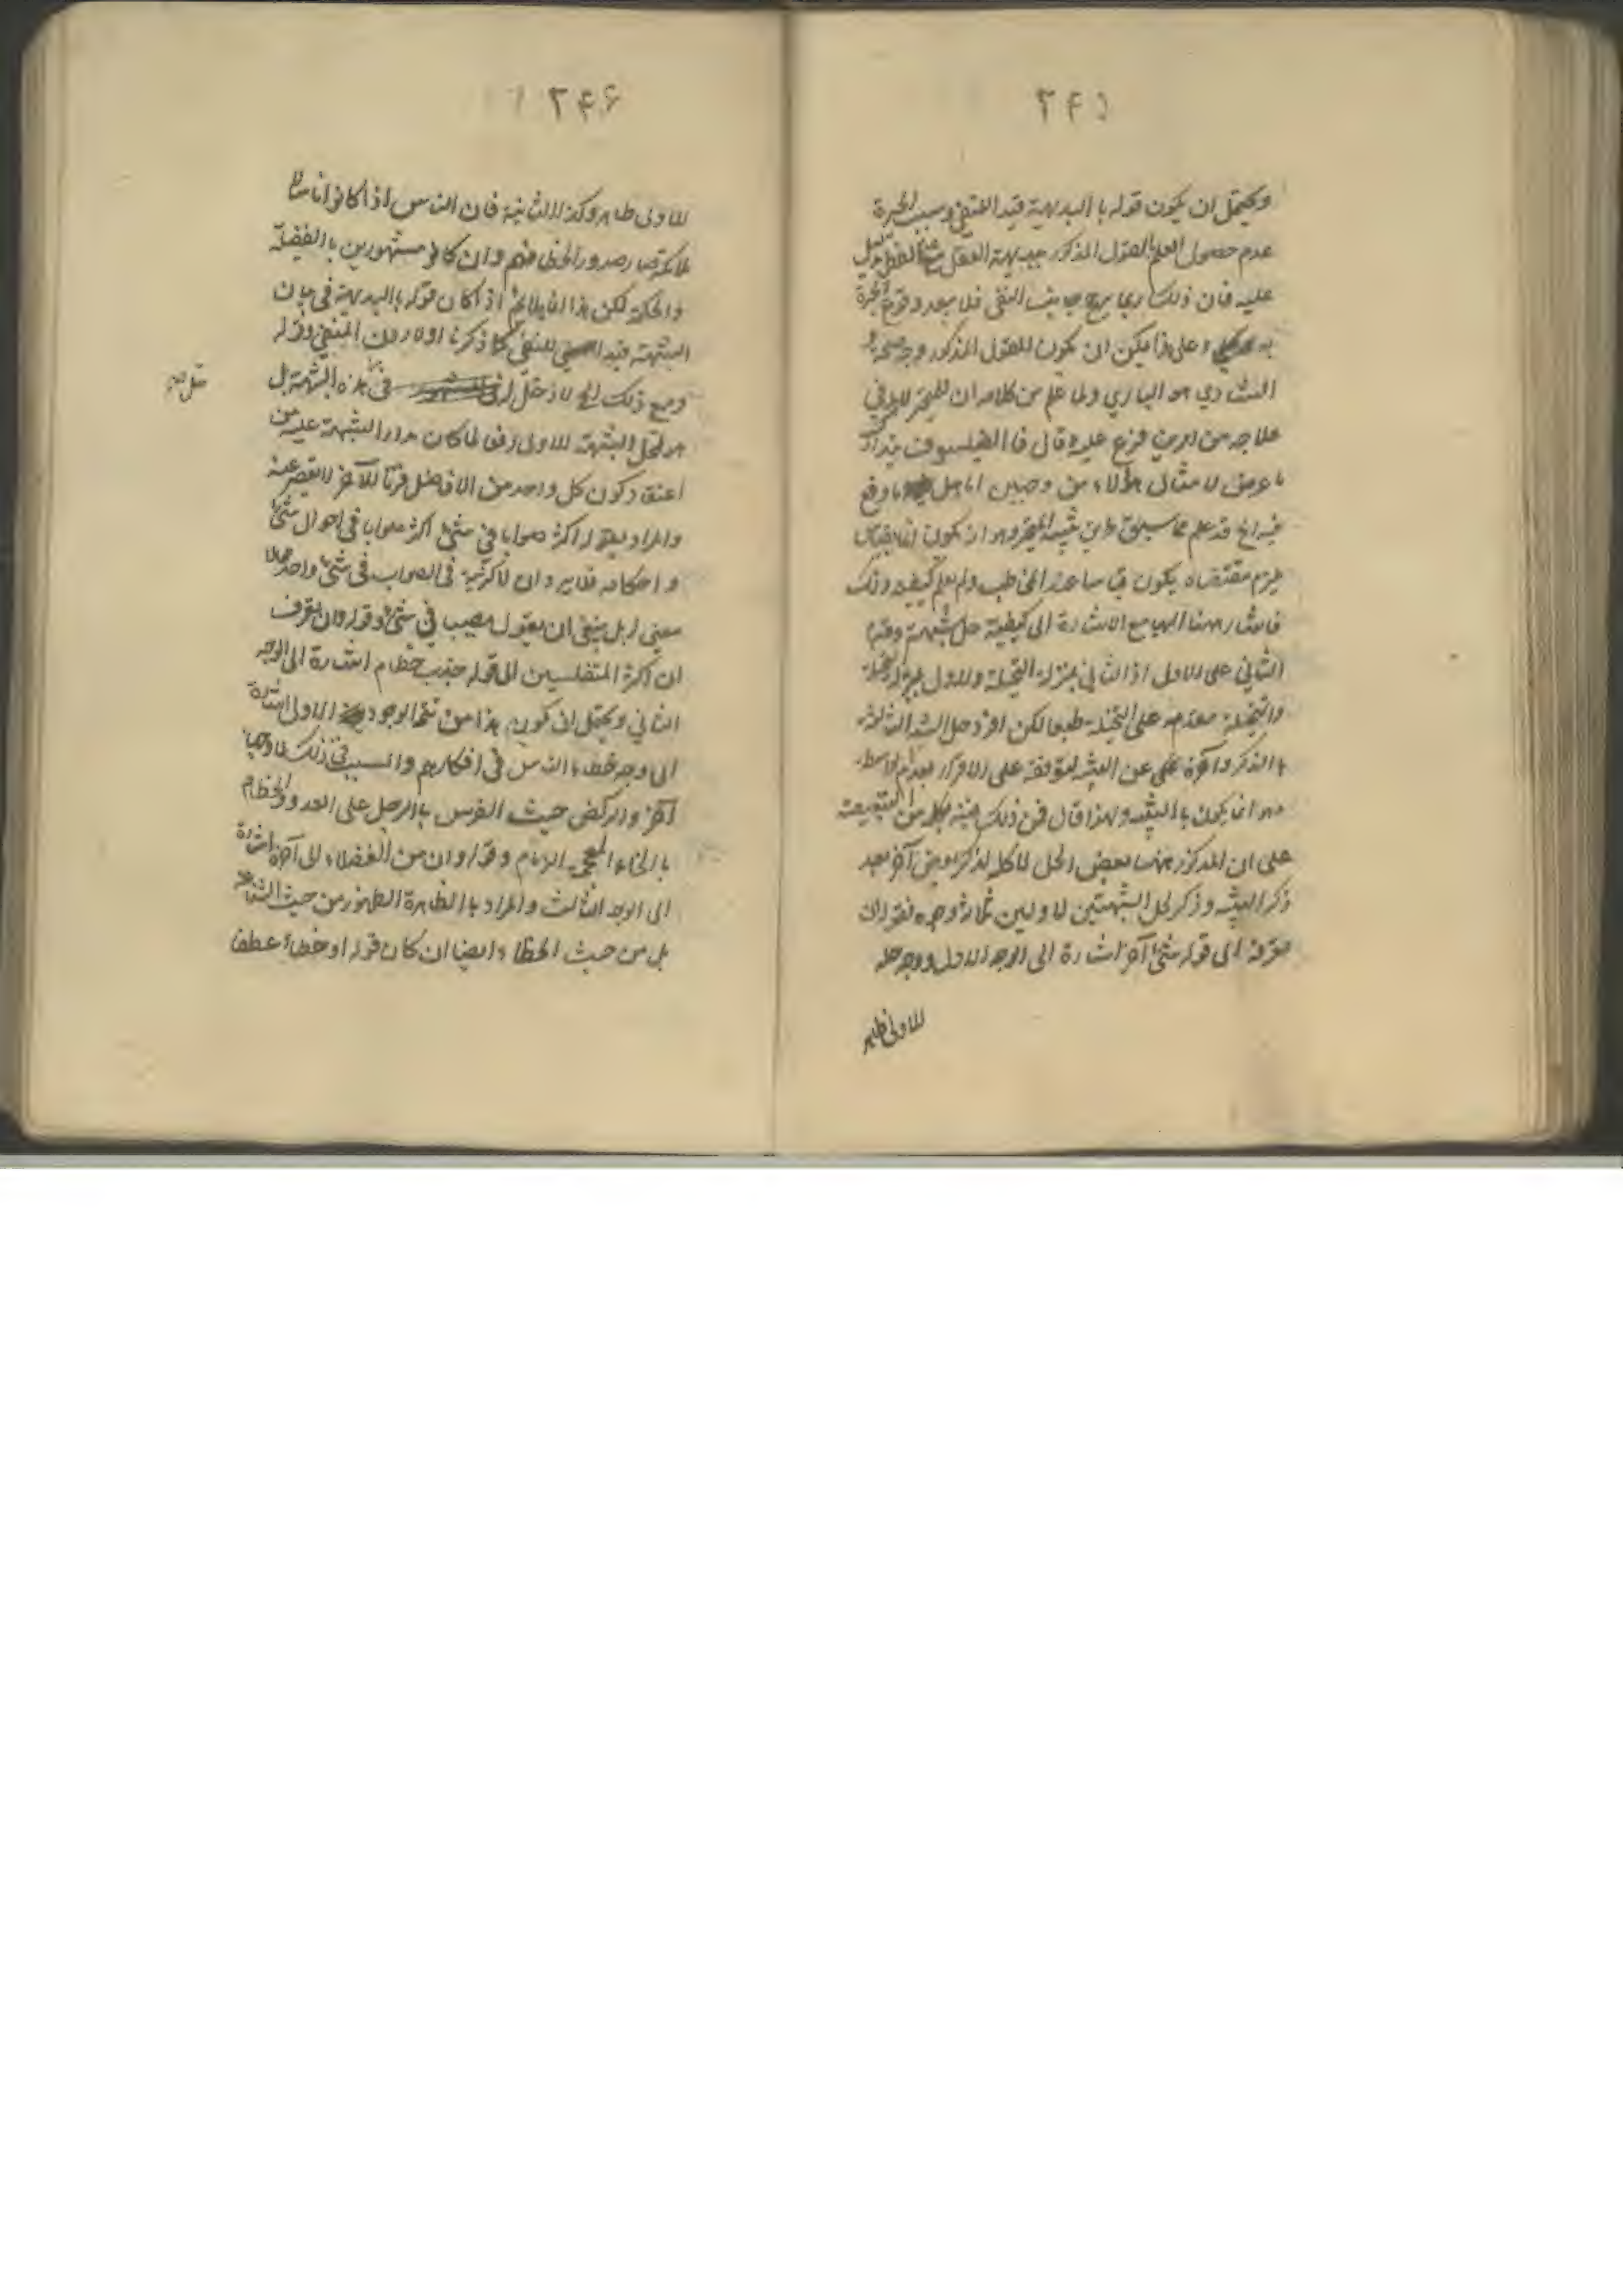 ٢٤٥
ويحتمل ان يكون قوله بالبديهة قيد المنفي وسبب الحيرة
عدم حصول العلم بالقول المذكور ببديهة العقل
عليه فان ذلك ربما يرجح جانب النفي فلا يبعد وقوع الحيرة
به وعلى هذا يمكن ان يكون للقول المذكور وجه صحة
التساوي هو الباري ولما علم من كلامه ان للمتحير لا بد في
علاجه من امرين فرع عليه وقال فالفيلسوف يتدارك
ما عرض لامثال هؤلاء من وجهين اما حل ما وقع
فيه الخ قد علم مما سبق طريق تنبيه المتحير وهو ان يكون
يلزم مقتضاه يكون قياسا عند المخاطب ولم يعلم كيفية ذلك
فاشار ههنا اليها مع الاشارة الى كيفية حل شبهته وقدم
الثاني على الاول اذ الثاني بمنزلة التحلية والاول بمنزلة التخلية
والتخلية مقدمة على التحلية طبعا لكن افرد حل الشبه الثالثة
بالذكر وآخره عن التنبيه لتوقفه على الاقرار بعدم الواسطة
وهو انما يكون بالتنبيه ولهذا قال فمن ذلك بكلمة من التبعيضية
على ان المذكور ههنا بعض الحل لا كله لذكر بعض آخر بعد
ذكر التنبيه وذكر لحل الشبهتين الاوليين ثلاثة وجوه فقوله ان
معرفة الى قوله شئ آخر اشارة الى الوجه الاول ووجه حله
للاولى ظاهر
٢٤٦
للاولى ظاهر وكذا للثانية فان الناس اذا كانوا اناسا
لا ملائكة صدور الخطأ منهم وان كانوا مشهورين بالفضيلة
والحكمة لكن هذا انما يلائم اذا كان قوله بالبديهة في بيان
الشبهة قيدا للنفي كما ذكرنا اولا دون المنفي وقوله
ومع ذلك الخ لا دخل له في هذه الشبهة بل
هو لحل الشبهة الاولى دفعا لما كان مدار الشبهة عليه من
اعتقاد كون كل واحد من الافاضل قرنا للآخر لا يقصر عنه
والمراد بقوله اكثر صوابا في شئ اكثر صوابا في احوال شئ
واحكامه فلا يرد ان لا اكثرية في الصواب في شئ واحد
معنى له بل ينبغي ان يقول مصيب في شئ وقوله وان يعرف
ان اكثر المتفلسفين الى قوله جذب خطام اشارة الى الوجه
الثاني ويحتمل ان يكون هذا من تتمة الوجود الاولى اشارة
الى وجه خطاء الناس في افكارهم والسبب في ذلك لا وجها
آخر والركض حيث الفرس بالرجل على العدو والخطام
بالخاء المعجمة الزمام وقوله وان من الفضلاء الى آخره اشارة
الى الوجه الثالث والمراد بالظاهرة الظهور من حيث
بل من حيث الخطاء ايضا ان كان قوله او خطاء عطفا